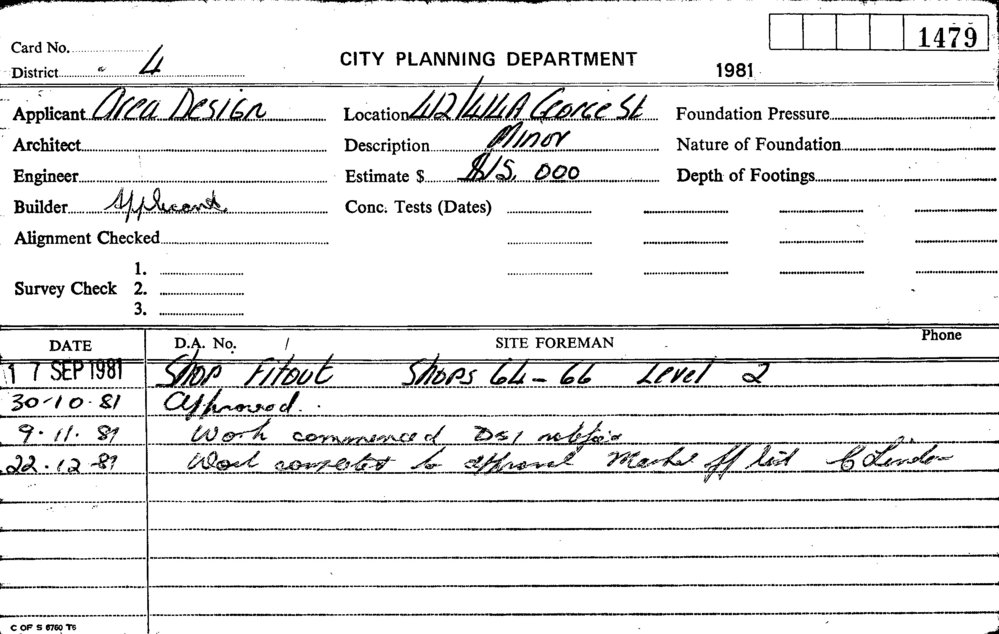 1479
Card No.
District 4
CITY PLANNING DEPARTMENT
1981
Applicant Area Design
Location 412/414A George St
Foundation Pressure
Architect
Description Minor
Nature of Foundation
Engineer
Estimate $ $15,000
Depth of Footings
Builder Applicant
Conc. Tests (Dates)
Alignment Checked
Survey Check
1.
2.
3.
DATE D.A. No. SITE FOREMAN Phone
17 SEP 1981 Shop Fitout Shops 64-66 Level 2
30-10-81 Approved.
9.11.81 Work commenced DSI
22.12-81 Work completed to approval off list
C OF S 6760 T6